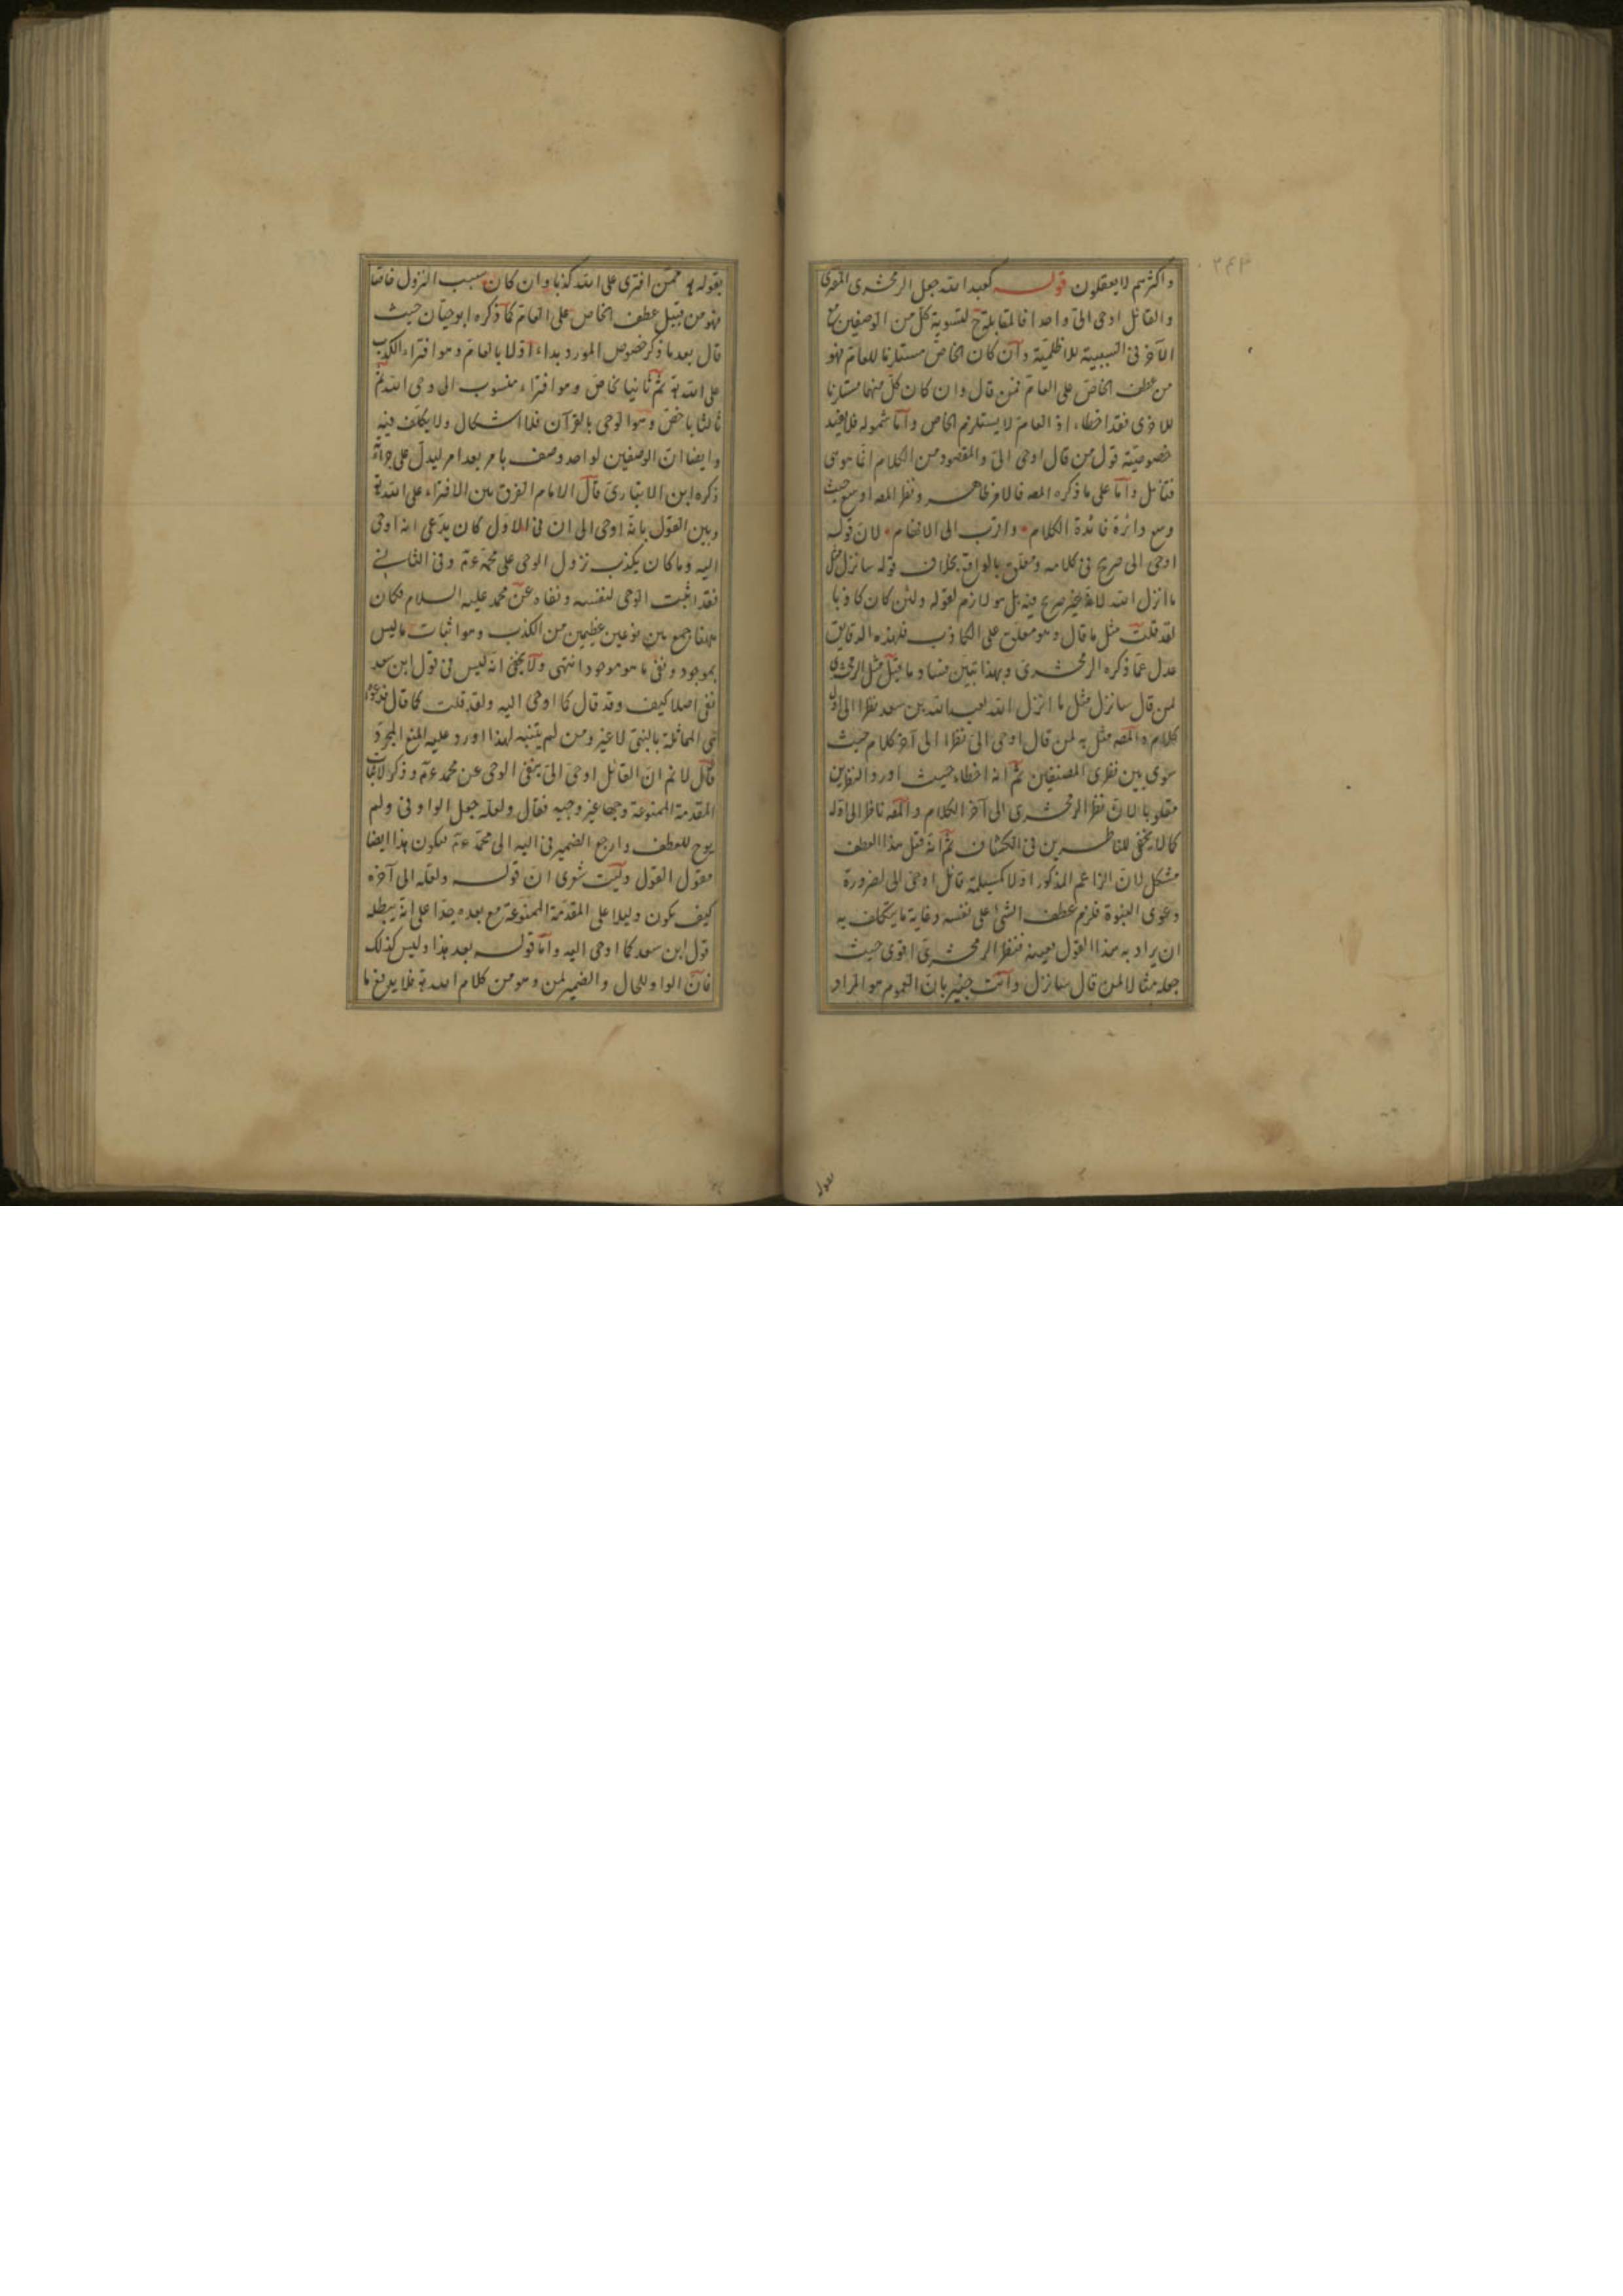 واكثرهم لا يعقلون قوله كعبد الله جعل الزمخشرى المفترى
والقائل اوحى الىّ واحدا فالمقابلة ح لتسوية كل من الوصفين مع
الآخر فى السببية للاظلمية وان كان الخاص مستلزما للعام فهو
من عطف الخاص على العام فمن قال وان كان كل منهما مستلزما
للاخرى فقد اخطاء اذ العام لا يستلزم الخاص واما شموله فلا يفيد
خصوصية قول من قال اوحى الىّ والمقصود من الكلام انما هو هى
فتأمل واما على ما ذكره المصه فالامر ظاهر ونظر المصه اوسع حيث
وسع دائرة فائدة الكلام واقرب الى الافهام لان قوله
اوحى الى صريح فى كلامه ومعلق بالواقع بخلاف قوله سانزل مثل
ما انزل الله لانه غير صريح فيه بل هو لازم لقوله ولئن كان كاذبا
لقد قلت مثل ما قال وهو معلق على الكاذب فلهذه الدقايق
عدل عما ذكره الزمخشرى وبهذا تبين فساد ما قيل مثل الزمخشرى
لمن قال سانزل مثل ما انزل الله بعبد الله بن سعد نظرا الى اول
كلامه والمصه مثل به لمن قال اوحى الى نظرا الى آخر كلامه حيث
سوى بين نظرى المصنفين ثم انه اخطاء حيث اورد النظرين
مقلوبا لان نظر الزمخشرى الى آخر الكلام والمصه ناظر الى اوله
كما لا يخفى للناظرين فى الكشاف ثم انه قيل هذا العطف
مشكل لان الزاعم المذكور اولا كمسيلمة قائل اوحى الى لضرورة
دعوى النبوة فلزم عطف الشئ على نفسه وغاية ما يتكلف به
ان يراد به هذا القول بعينه فنظر الزمخشرى اقوى حيث
جعله مثالا لمن قال سانزل وانت خبير بان العموم هو المراد
بقوله ممن افترى على الله كذبا وان كان سبب النزول خاصا
فهو من قبيل عطف الخاص على العام كما ذكره ابو حيان حيث
قال بعد ما ذكر خصوص المورد بداء اولا بالعام وهو افتراء الكذب
على الله ثم ثانيا بخاص وهو افتراء منسوب الى وحى الله ثم
ثالثا باخص وهو الوحى بالقرآن فلا اشكال ولا تكلف فيه
وايضا ان الوصفين لواحد وصف بامر بعد امر ليدل على جرأته
ذكره ابن الانبارى قال الامام الفرق بين الافتراء على الله
وبين القول بانه اوحى الى ان فى الاول كان يدعى انه اوحى
اليه وما كان يكذب نزول الوحى على محمد عم وفى الثانى
فقد اثبت الوحى لنفسه ونفاه عن محمد عليه السلام فكان
هذا جمع بين نوعين عظيمين من الكذب وهو اثبات ما ليس
بموجود ونفى ما هو موجود انتهى ولا يخفى انه ليس فى قول ابن سعد
نفى اصلا كيف وقد قال كما اوحى اليه ولقد قلت كما قال
هى المماثلة بالنبى لا غير ومن لم يتنبه لهذا اورد عليه المنع المجرد
قال لا نم ان القائل اوحى الى ينفى الوحى عن محمد عم وذكر لاثبات
المقدمة الممنوعة وجها غير وجيه فقال ولعله جعل الواو فى ولم
يوح للعطف وارجع الضمير فى اليه الى محمد عم فيكون هذا ايضا
مقول القول وليت شعرى ان قوله ولعله الى آخره
كيف يكون دليلا على المقدمة الممنوعة مع بعده جدا على انه يبطله
قول ابن سعد كما اوحى اليه واما قوله بعد هذا وليس كذلك
فان الواو للحال والضمير لمن وهو من كلام الله فلا يدفع ما